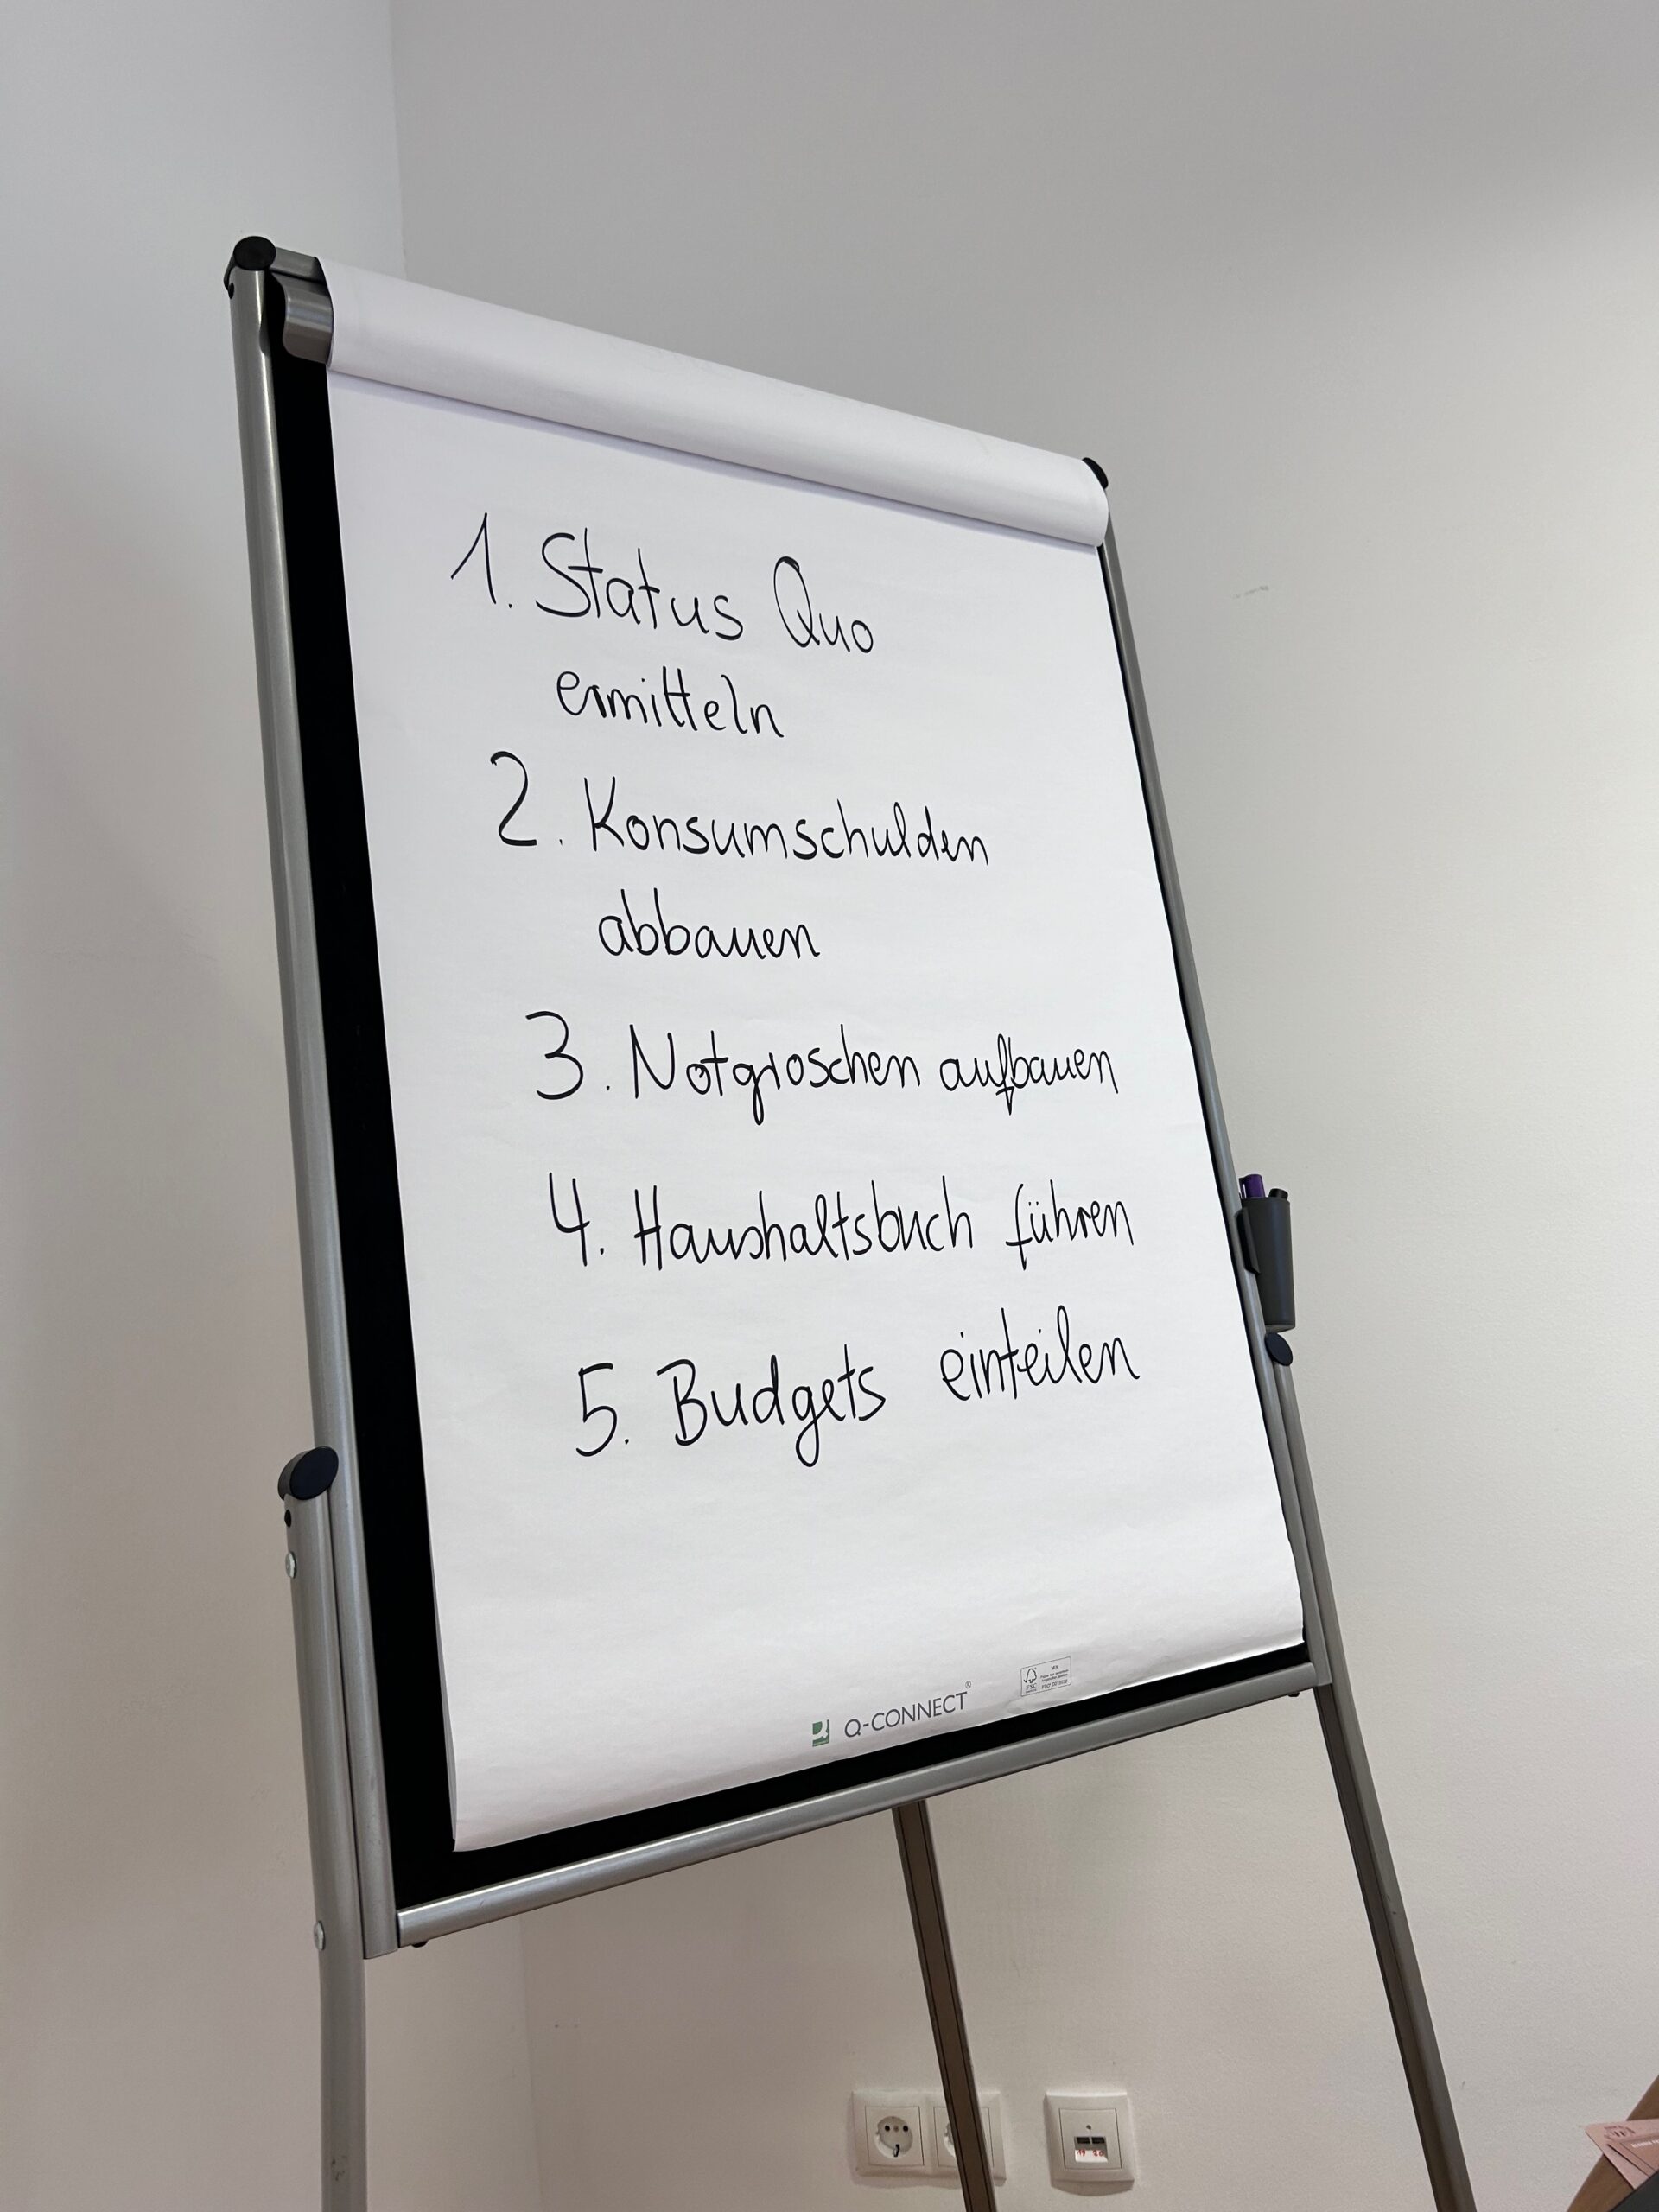 1. Status Quo
ermitteln
2. Konsumschulden
abbauen
3. Notgroschen aufbauen
4. Haushaltsbuch führen
5. Budgets einteilen
Q-CONNECT®
FSC
MIX